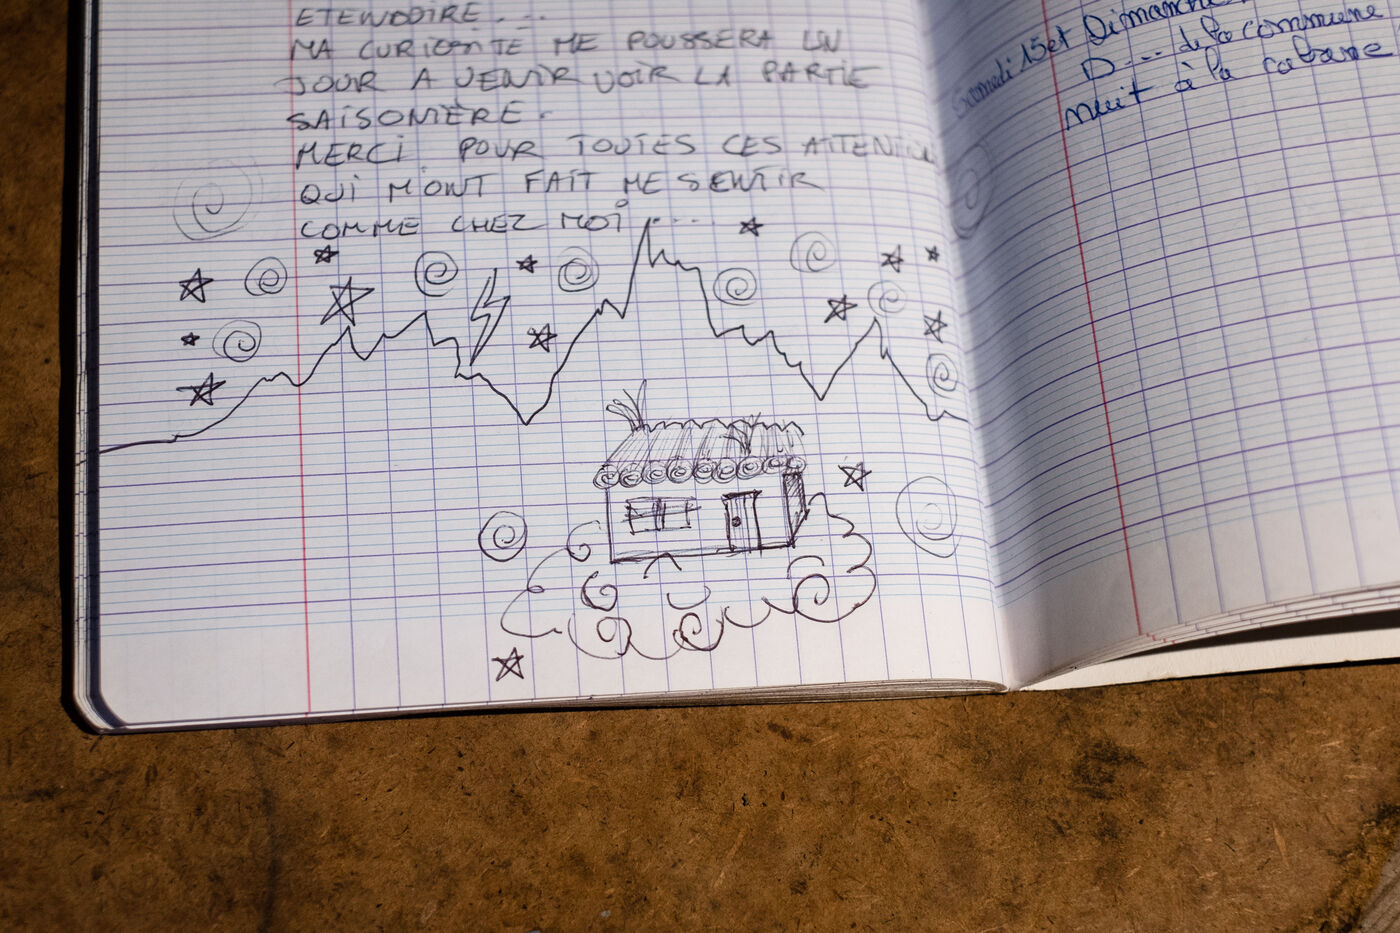 ETENDOIRE...
MA CURIOSITE ME POUSSERA UN
JOUR A VENIR VOIR LA PARTIE
SAISONIÈRE.
MERCI POUR TOUTES CES
QUI M'ONT FAIT ME SENTIR
COMME CHEZ MOI...
Samedi 15 et Dimanche
D... de la commune
nuit à la cabane